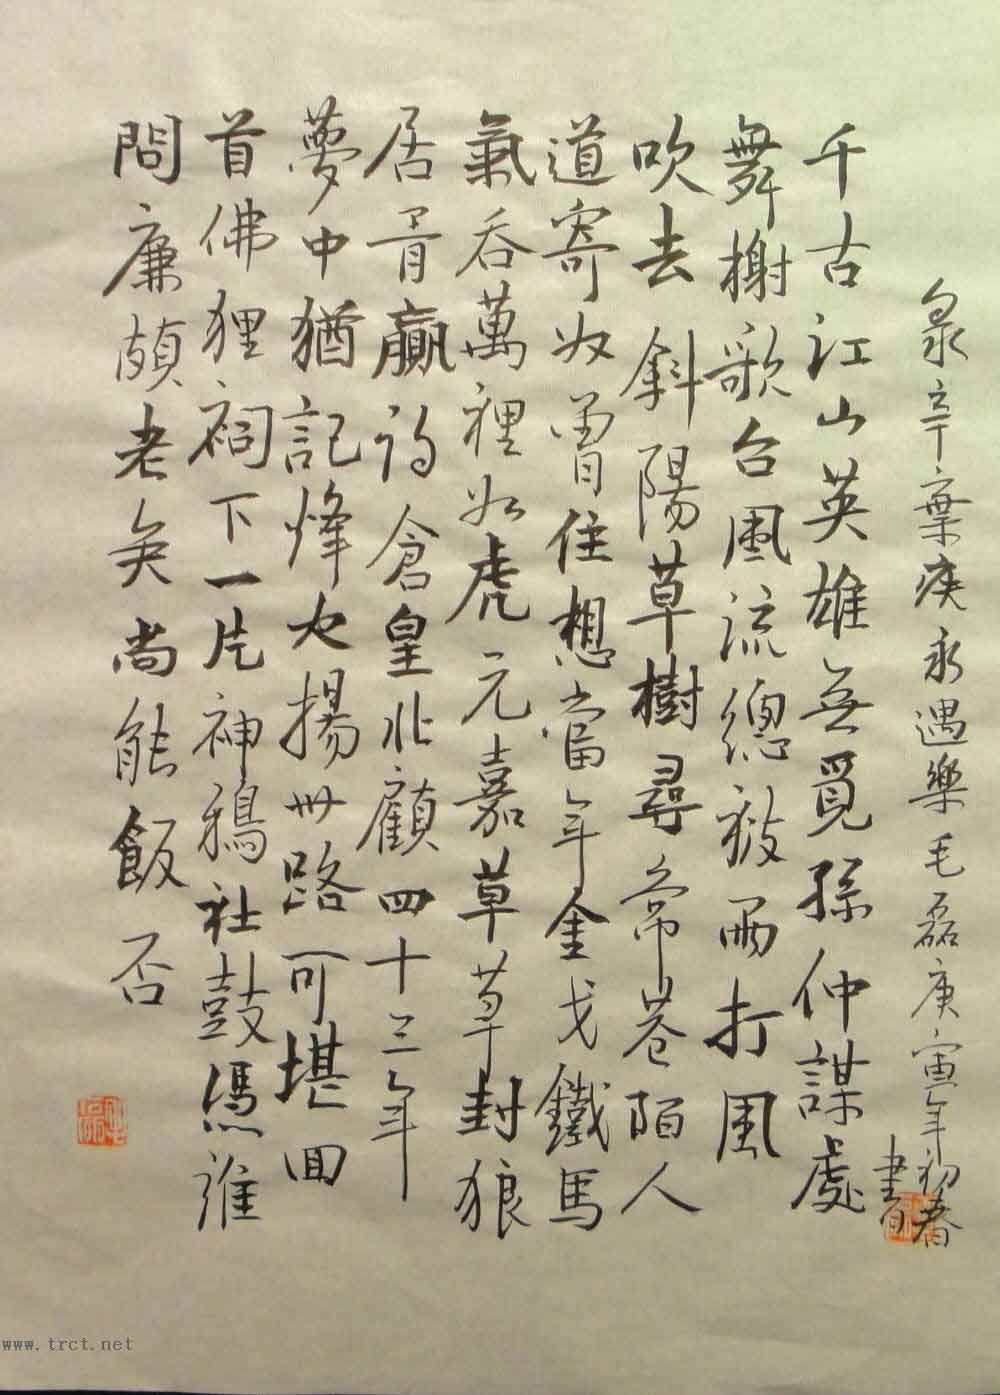 录辛棄疾永遇樂毛磊庚寅年初春
書
千古江山英雄無覓孫仲謀處
舞榭歌台風流總被雨打風
吹去斜陽草樹尋常巷陌人
道寄奴曾住想當年金戈鐵馬
氣吞萬裡如虎元嘉草草封狼
居胥贏得倉皇北顧四十三年
夢中猶記烽火揚州路可堪回
首佛狸祠下一片神鴉社鼓憑誰
問廉頗老矣尚能飯否
www.trct.net